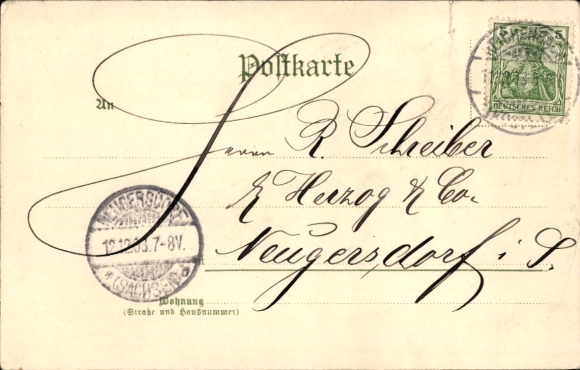 Postkarte
5
DEUTSCHES REICH
An
Herrn R. Schreiber
Herzog & Co.
Neugersdorf i. S.
NEUGERSDORF
12.12.03.7-8V.
* (SACHSEN) b
Wohnung
(Straße und Hausnummer)